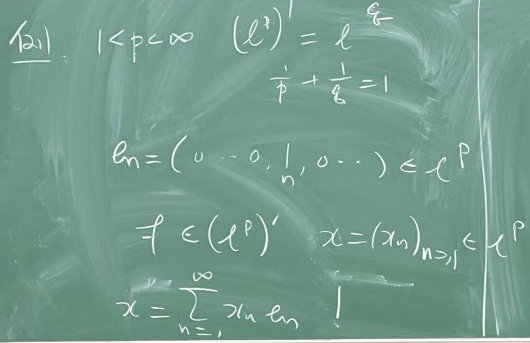 1<p<∞ (l^p)' = l^q
1/p + 1/q = 1
e_n = (0 -- 0, 1, 0 ..) ∈ l^p
n
f ∈ (l^p)' x = (x_n)_{n≥1} ∈ l^p
x "=" ∑_{n=1}^{∞} x_n e_n !